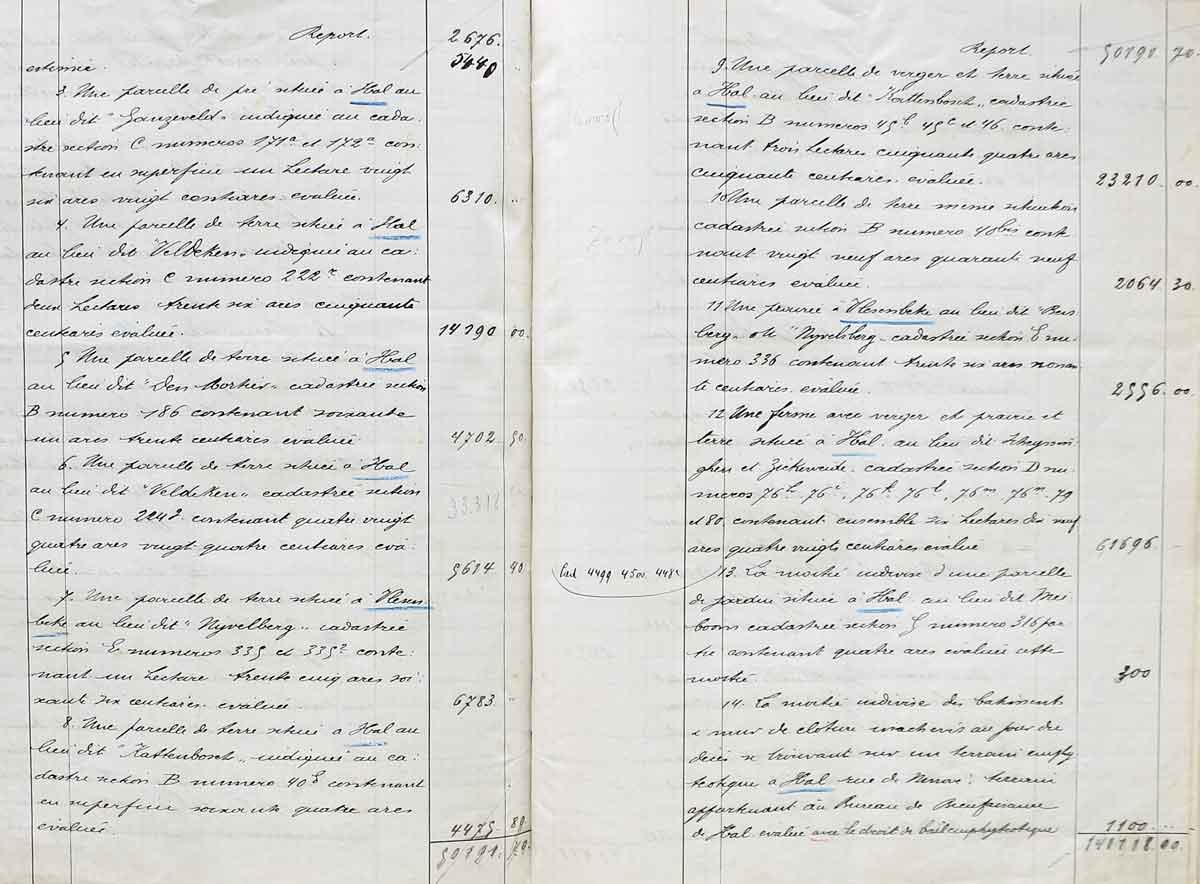 Report. 2676.
estimée. 5440 "
3. Une parcelle de pré située à Hal au
lieu dit "Ganzeveld" indiquée au cada-
stre section C numeros 171a et 172a con-
tenant en superficie un hectare vingt
six ares vingt centiares. evaluée. 6310. "
4. Une parcelle de terre située à Hal
au lieu dit "Veldeken" indiquée au ca-
dastre section C numero 222 contenant
deux hectares trente six ares cinquante
centiares évaluée. 14190 00.
5 Une parcelle de terre située à Hal
au lieu dit "Den Mortier" cadastrée section
B numero 186 contenant soixante
un ares trente centiares évaluée 4702 50
6. Une parcelle de terre située à Hal
au lieu dit "Veldeken" cadastrée section
C numero 224d. contenant quatre vingt
quatre ares vingt quatre centiares eva-
luée. 5614 40
7. Une parcelle de terre située à Vlesen-
beke au lieu dit "Nyvelberg" cadastrée
section E numeros 335 et 335 conte-
nant un hectare trente cinq ares soi-
xante six centiares évaluée. 6783 "
8. Une parcelle de terre située à Hal au
lieu dit "Kattenbosch" indiquée au ca-
dastre section B numero 40 contenant
en superficie soixante quatre ares
evaluée. 4475 80
50191. 70.
33.318
Cad 4499 4500 448
Report 50191 70.
9. Une parcelle de verger et terre située
à Hal au lieu dit "Kattenbosch" cadastrée
section B numeros 45b 45c et 46. conte-
nant trois hectares cinquante quatre ares
cinquante centiares. évaluée. 23210 00.
10 Une parcelle de terre même situation
cadastrée section B numero 40bis conte-
nant vingt neuf ares quarante neuf
centiares évaluée. 2064 30.
11 Une à Vlesembeke au lieu dit
ou "Nyvelsberg" cadastrée section E nu-
mero 336 contenant trente six ares nonan-
te centiares. evaluée. 2556. 00
12 Une ferme avec verger et prairie et
terre située à Hal. au lieu dit
et cadastrée section D nu-
meros 76h. 76i, 76k. 76l, 76m, 76n. 79
et 80. contenant ensemble six hectares dix neuf
ares quatre vingts centiares evalué 61696 -
13. La moitié indivise d'une parcelle
de jardin située à Hal au lieu dit Mei-
boom cadastrée section G numero 316 par-
tie contenant quatre ares evaluée cette
moitié. 300
14. La moitié indivise des batisses
& mur de cloture inachevés au jour du
décès se trouvant sur un terrain emphy-
teotique à Hal rue de terrain
appartenant au Bureau de Bienfaisance
de Hal. evalué avec le droit de bail emphytéotique 1100
141118.00.